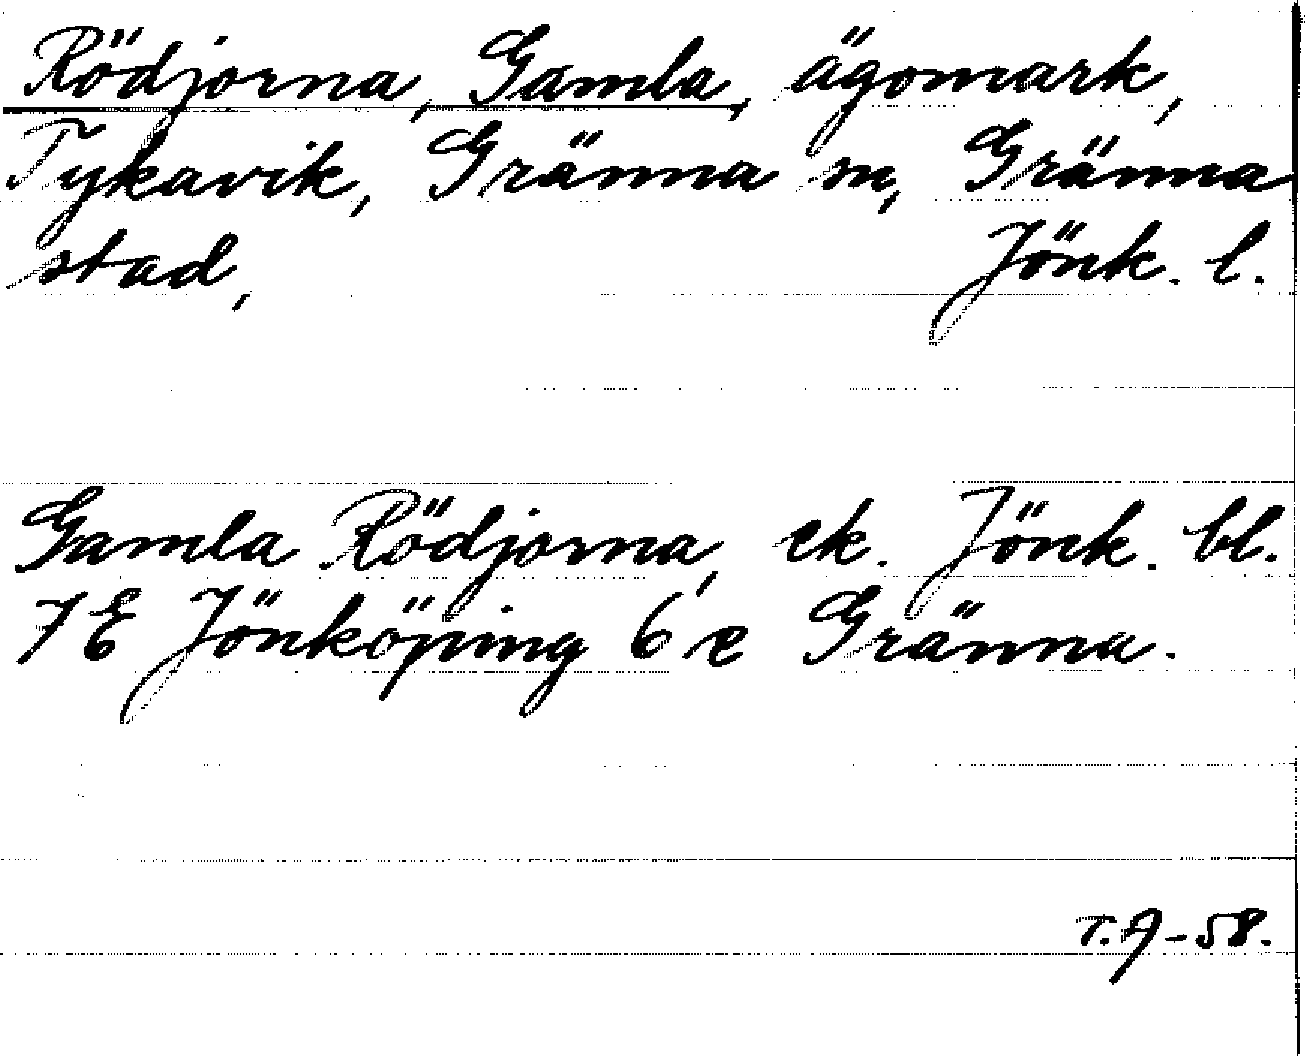 Rödjorna, Gamla, ägomark,
Tykavik, Gränna sn, Gränna
stad, Jönk. l.
Gamla Rödjorna, ek. Jönk. bl.
7E Jönköping 6 e Gränna.
T.A-58.